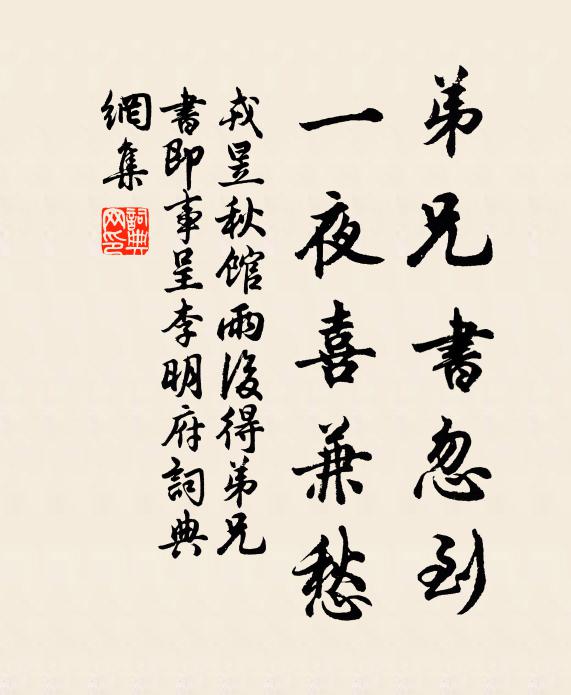 弟兄書忽到
一夜喜兼愁
戎昱秋館雨後得弟兄
書即事呈李明府詞典
網集
詞典
网印